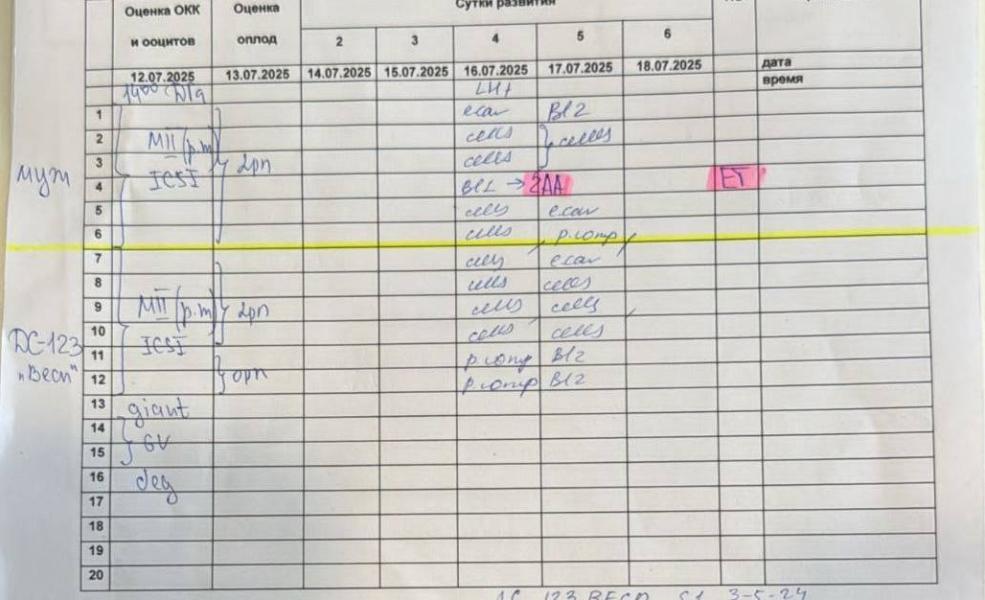 Оценка ОКК Оценка Сутки развития
и ооцитов оплод 2 3 4 5 6
12.07.2025 13.07.2025 14.07.2025 15.07.2025 16.07.2025 17.07.2025 18.07.2025 дата
время
1400
1 ecav Bl2
2 MII (p.m) cells cells
3 2pn cells
муж
ICSI
4 Bl1 → 2AA ET
5 cells ecav
6 cells p.comp
7 cells ecav
8 cells cells
9 MII (p.m) 2pn cells cells
10 cells cells
ДС-123 ICSI
11 p.comp Bl2
"Весп"
12 0pn p.comp Bl2
13 giant
14
GV
15
16 deg
17
18
19
20
ДС 123 ВЕСП S1 3-5-24